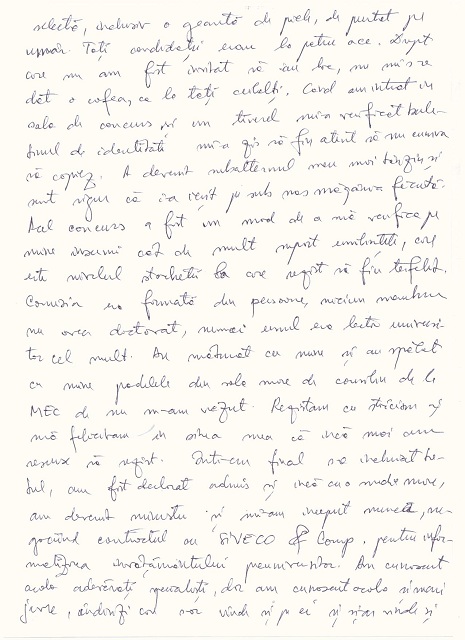 selectă, inclusiv o geantă de piele, de purtat pe
umăr. Toți candidații erau la patru ace. Drept
care nu am fost invitat să iau loc, nu mi s-a
dat o cafea, ca la toți ceilalți. Când am intrat în
sala de concurs, și un tinerel mi-a verificat bule-
tinul de identitate mi-a zis să fiu atent să nu cumva
să copiez. A devenit subalternul meu mai târziu și
sunt sigur că i-a ieșit pe sub nas măgăria făcută.
Acel concurs a fost un mod de a mă verifica pe
mine însumi cât de mult suport umilințele, care
este nivelul ștachetei la care rezist să fiu terfelit.
Comisia era formată din persoane, niciun membru
nu avea doctorat, numai unul era lector universi-
tar cel mult. Au măturat cu mine și au spălat
cu mine podelele din sala mare de consiliu de la
MEC de nu m-am văzut. Rezistam cu stoicism și
mă felicitam în sinea mea că încă mai am
resurse să rezist. Într-un final s-a încheiat to-
tul, am fost declarat admis și încă cu o medie mare,
am devenit ministru și mi-am început munca, ne-
gociind contractul cu SIVECO & Comp. pentru infor-
matizarea învățământului preuniversitar. Am cunoscut
acolo adevărați specialiști, dar am cunoscut acolo și mari
jivre, care s-or vinde și pe ei și și-ar vinde și